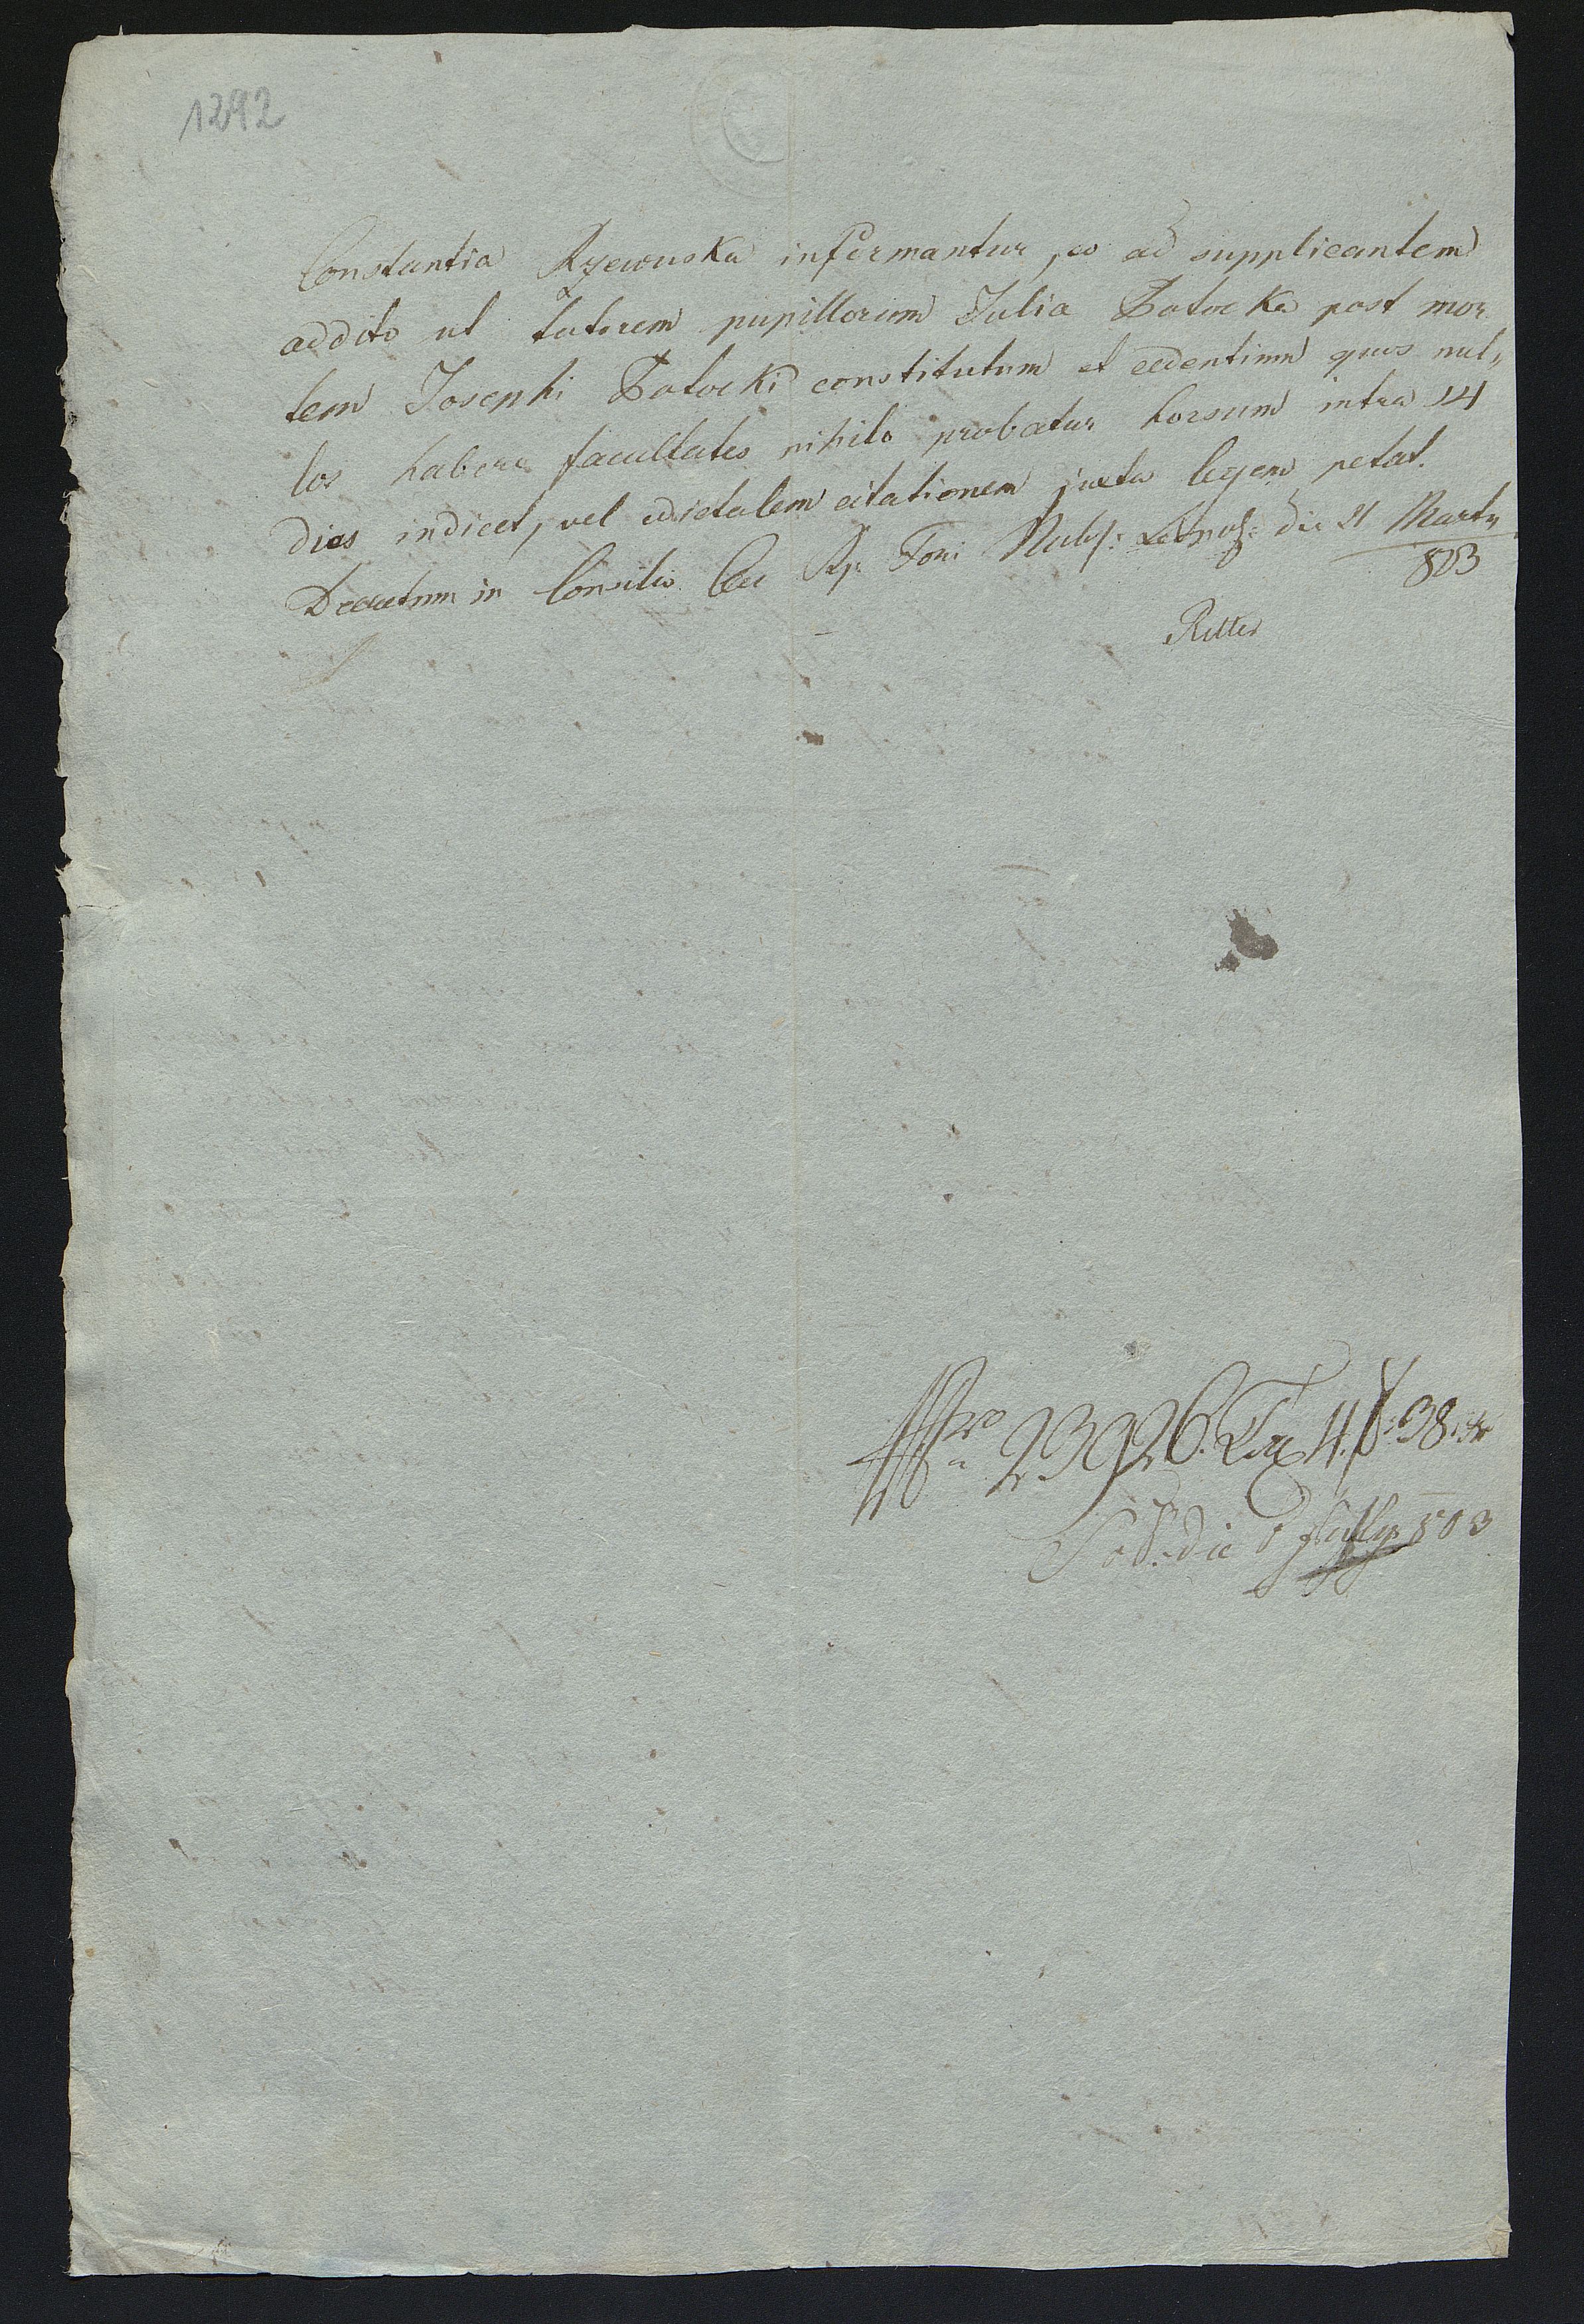 1292
Constantia Rzewuska informantur, eo ad supplicantem
addito ut tutorem pupillorum Julia Potocka post mor
tem Josephi Potocki constitutum et cedentium quos nul„
los habere facultates nihilo probatur horsum intra 14
dies indicet, vel edictalem citationem juxta legem petat.
Decretum in Consilio Caes Rg. Fori Nobil: Leopol: die 21 Marty
803
Ritter
Nro 23926. Tax 4 f: 38 xr
Sol: die Julij 803